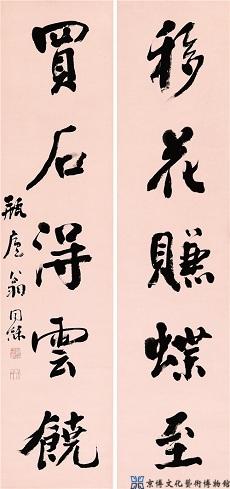 移花賺蝶至
買石得雲饒
瓶廬翁同龢
京博文化藝術博物館